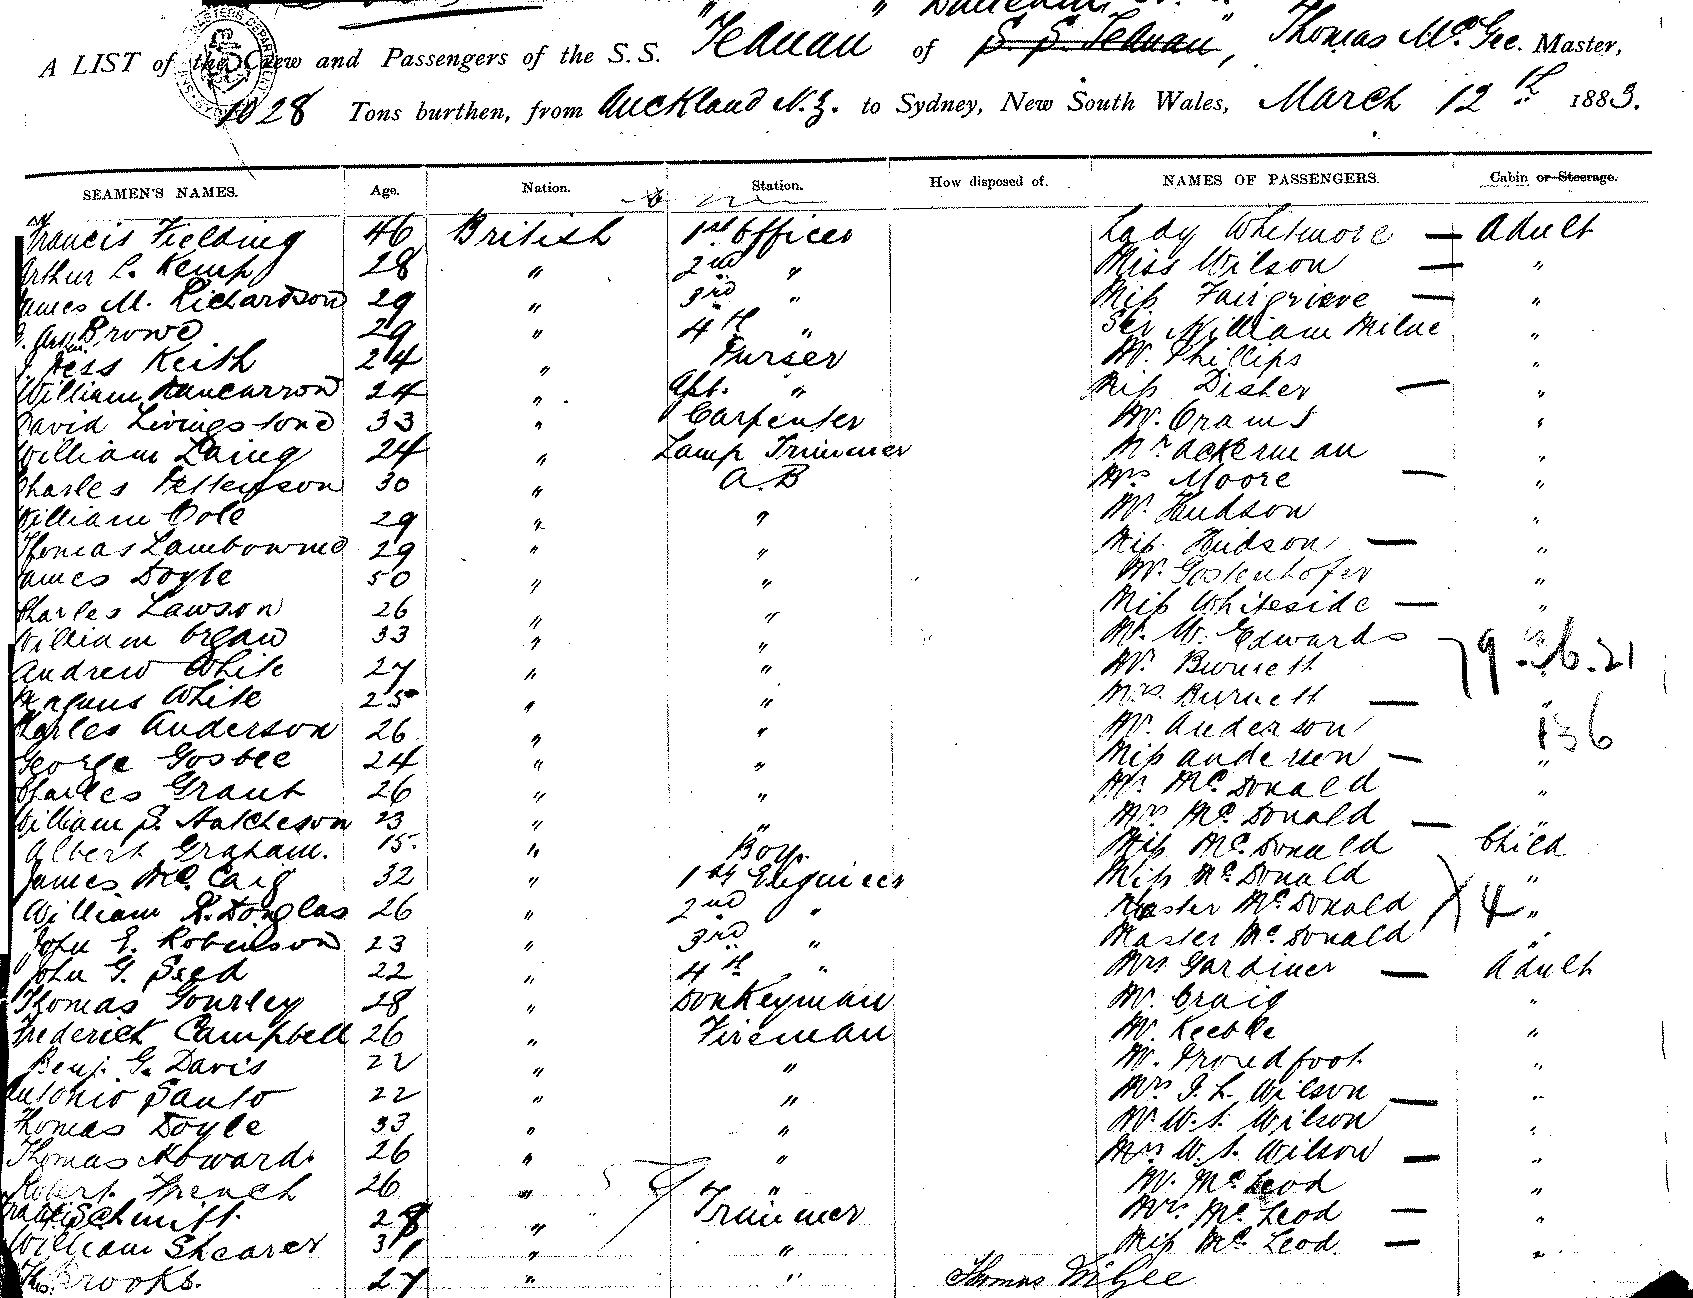 A LIST of the Crew and Passengers of the S. S. Tednan of S. S. Tednan, Thomas McGee. Master,
1028 Tons burthen, from Auckland N. Z. to Sydney, New South Wales, March 12th 1883.
SEAMEN'S NAMES. Age. Nation. Station. How disposed of. NAMES OF PASSENGERS. Cabin or Steerage.
Francis Fielding 46 British 1st Officer Lady Whitmore — Adult
Arthur C. Kemp 28 " 2nd " Miss Wilson — "
James M. Richardson 29 " 3rd " Miss Fairgrieve — "
Browne 29 " 4th " Sir William Milne "
J. Hess Keith 24 " Purser Mr. Phillips "
William 24 " Asst. " Miss Disher — "
David Livingstone 33 " Carpenter Mr. "
William Laing 24 " Lamp Trimmer Mr Ackerman "
Charles Petterson 30 " A. B Mrs Moore — "
William Cole 29 " " Mr. Hudson "
Thomas Lambourne 29 " " Miss Hudson — "
James Doyle 50 " " Mr. Gostenhofer "
Charles Lawson 26 " " Miss Whiteside — "
William Organ 33 " " Mr. W. Edwards "
Andrew White 27 " " Mr. Burnett 21
Magnus White 25 " " Mrs Burnett — "
Charles Anderson 26 " " Mr. Anderson 136
George Gosbee 24 " " Miss Anderson — "
Charles Grant 26 " " Mr. McDonald "
William S. Hatcheson 23 " " Mrs McDonald — "
Albert Graham. 15 " Boy. Miss McDonald Child
James McCaig 32 " 1st Engineer Miss McDonald "
William R. Douglas 26 " 2nd " Master McDonald 4 "
John E. Robinson 23 " 3rd " Master McDonald "
John G. Seed 22 " 4th " Mrs Gardiner — Adult
Thomas Gourley 28 " Donkeyman Mr. Craig "
Frederick Campbell 26 " Fireman Mr. Keeble "
Benj. G. Davis 22 " " Mr. Proudfoot "
Antonio Santo 22 " " Mrs J. L. Wilson — "
Thomas Doyle 33 " " Mr W. S. Wilson "
Thomas Howard. 26 " " Mrs W. S. Wilson — "
Robert French 26 " " Mr. McLeod "
Schmitt 28 " Trimmer Mrs McLeod — "
William Shearer 31 " " Miss McLeod. — "
Thos. Brooks. 27 " " Thomas McGee